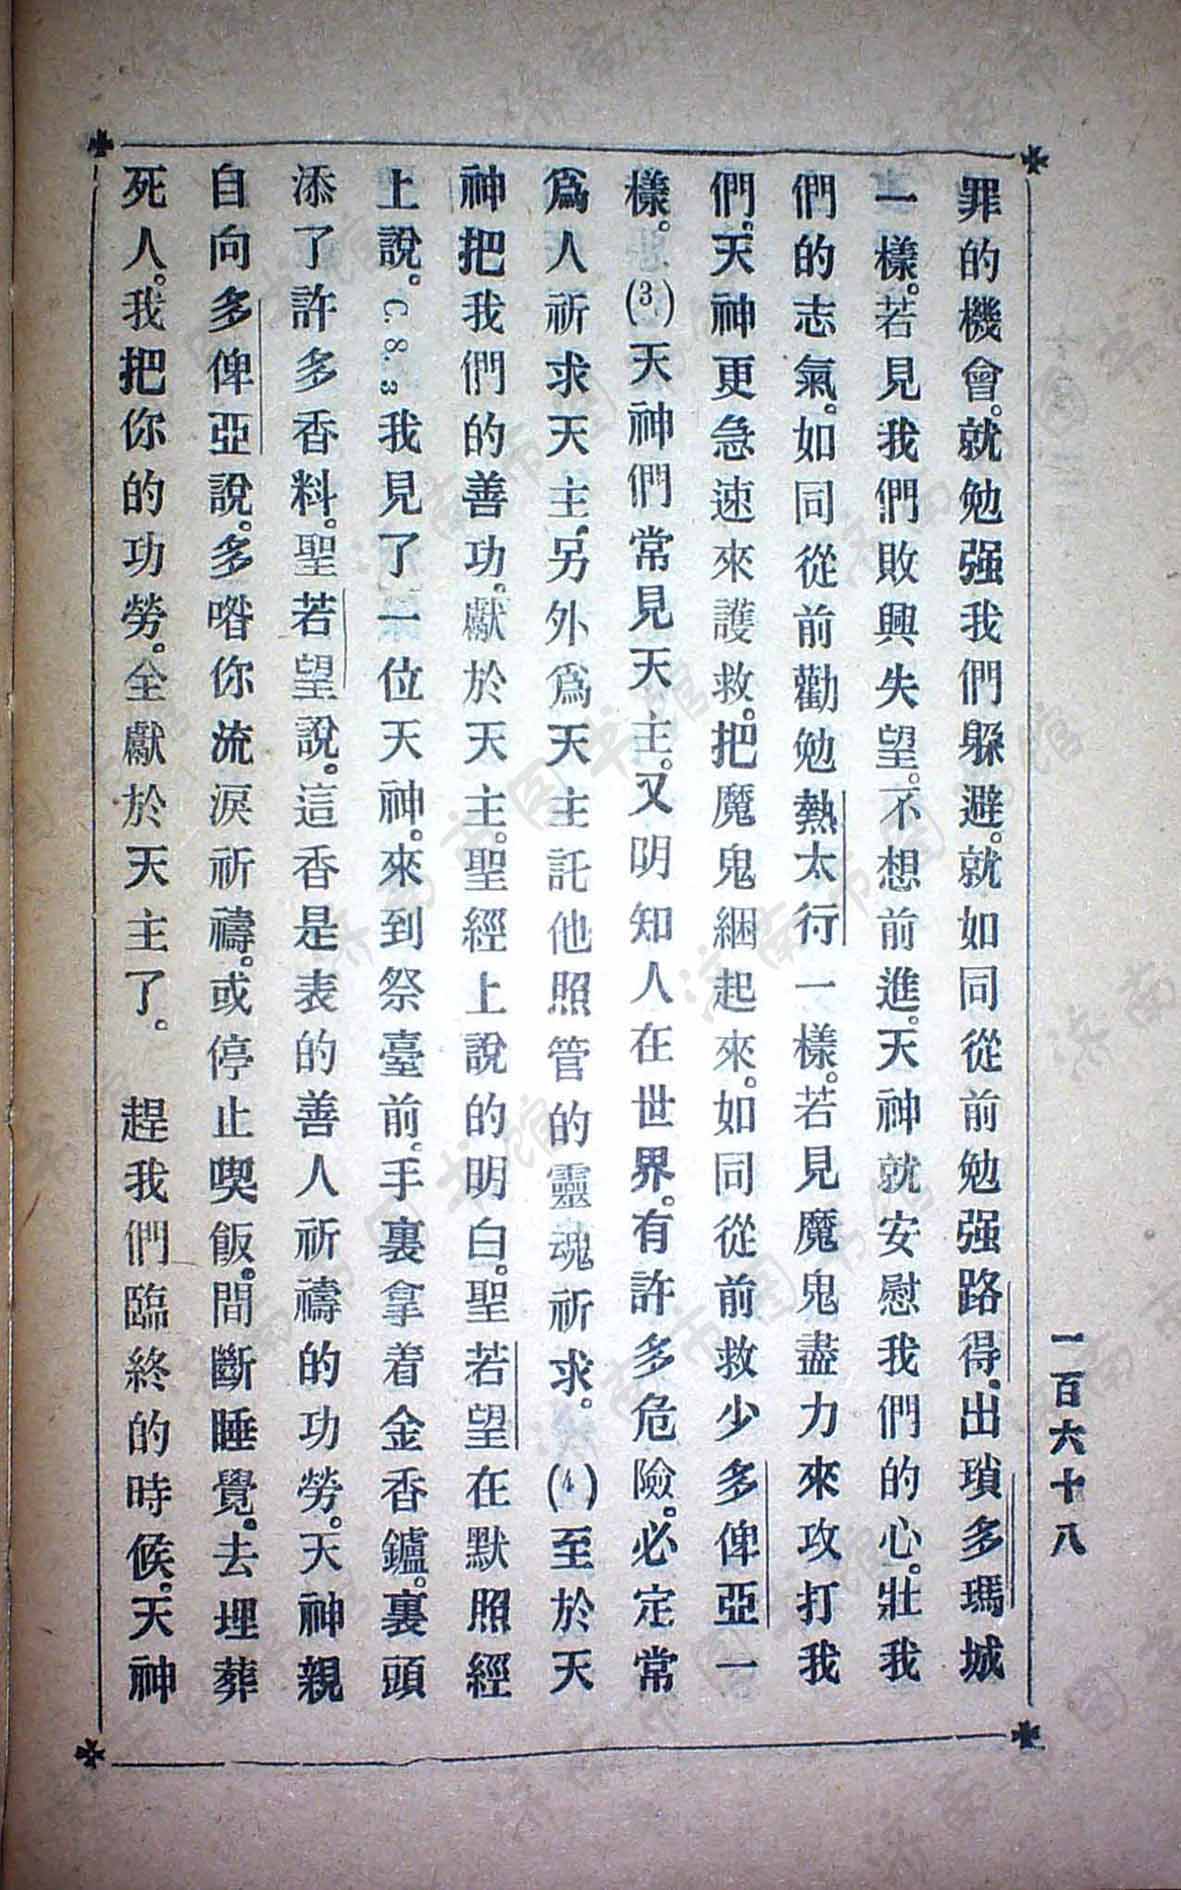 一百六十八
罪的機會。就勉强我們躲避。就如同從前勉强路得。出瑣多瑪城
一樣。若見我們敗興失望。不想前進。天神就安慰我們的心。壯我
們的志氣。如同從前勸勉熱太行一樣。若見魔鬼盡力來攻打我
們。天神更急速來護救。把魔鬼綑起來。如同從前救少多俾亞一
樣。(3)天神們常見天主。又明知人在世界。有許多危險。必定常
爲人祈求天主。另外爲天主託他照管的靈魂祈求。(4)至於天
神把我們的善功。獻於天主。聖經上說的明白。聖若望在默照經
上說。C. 8. 3我見了一位天神。來到祭臺前。手裏拿着金香鑪。裏頭
添了許多香料。聖若望說。這香是表的善人祈禱的功勞。天神親
自向多俾亞說。多喒你流淚祈禱。或停止喫飯。間斷睡覺。去埋葬
死人。我把你的功勞。全獻於天主了。 趕我們臨終的時候。天神
济南市图书馆